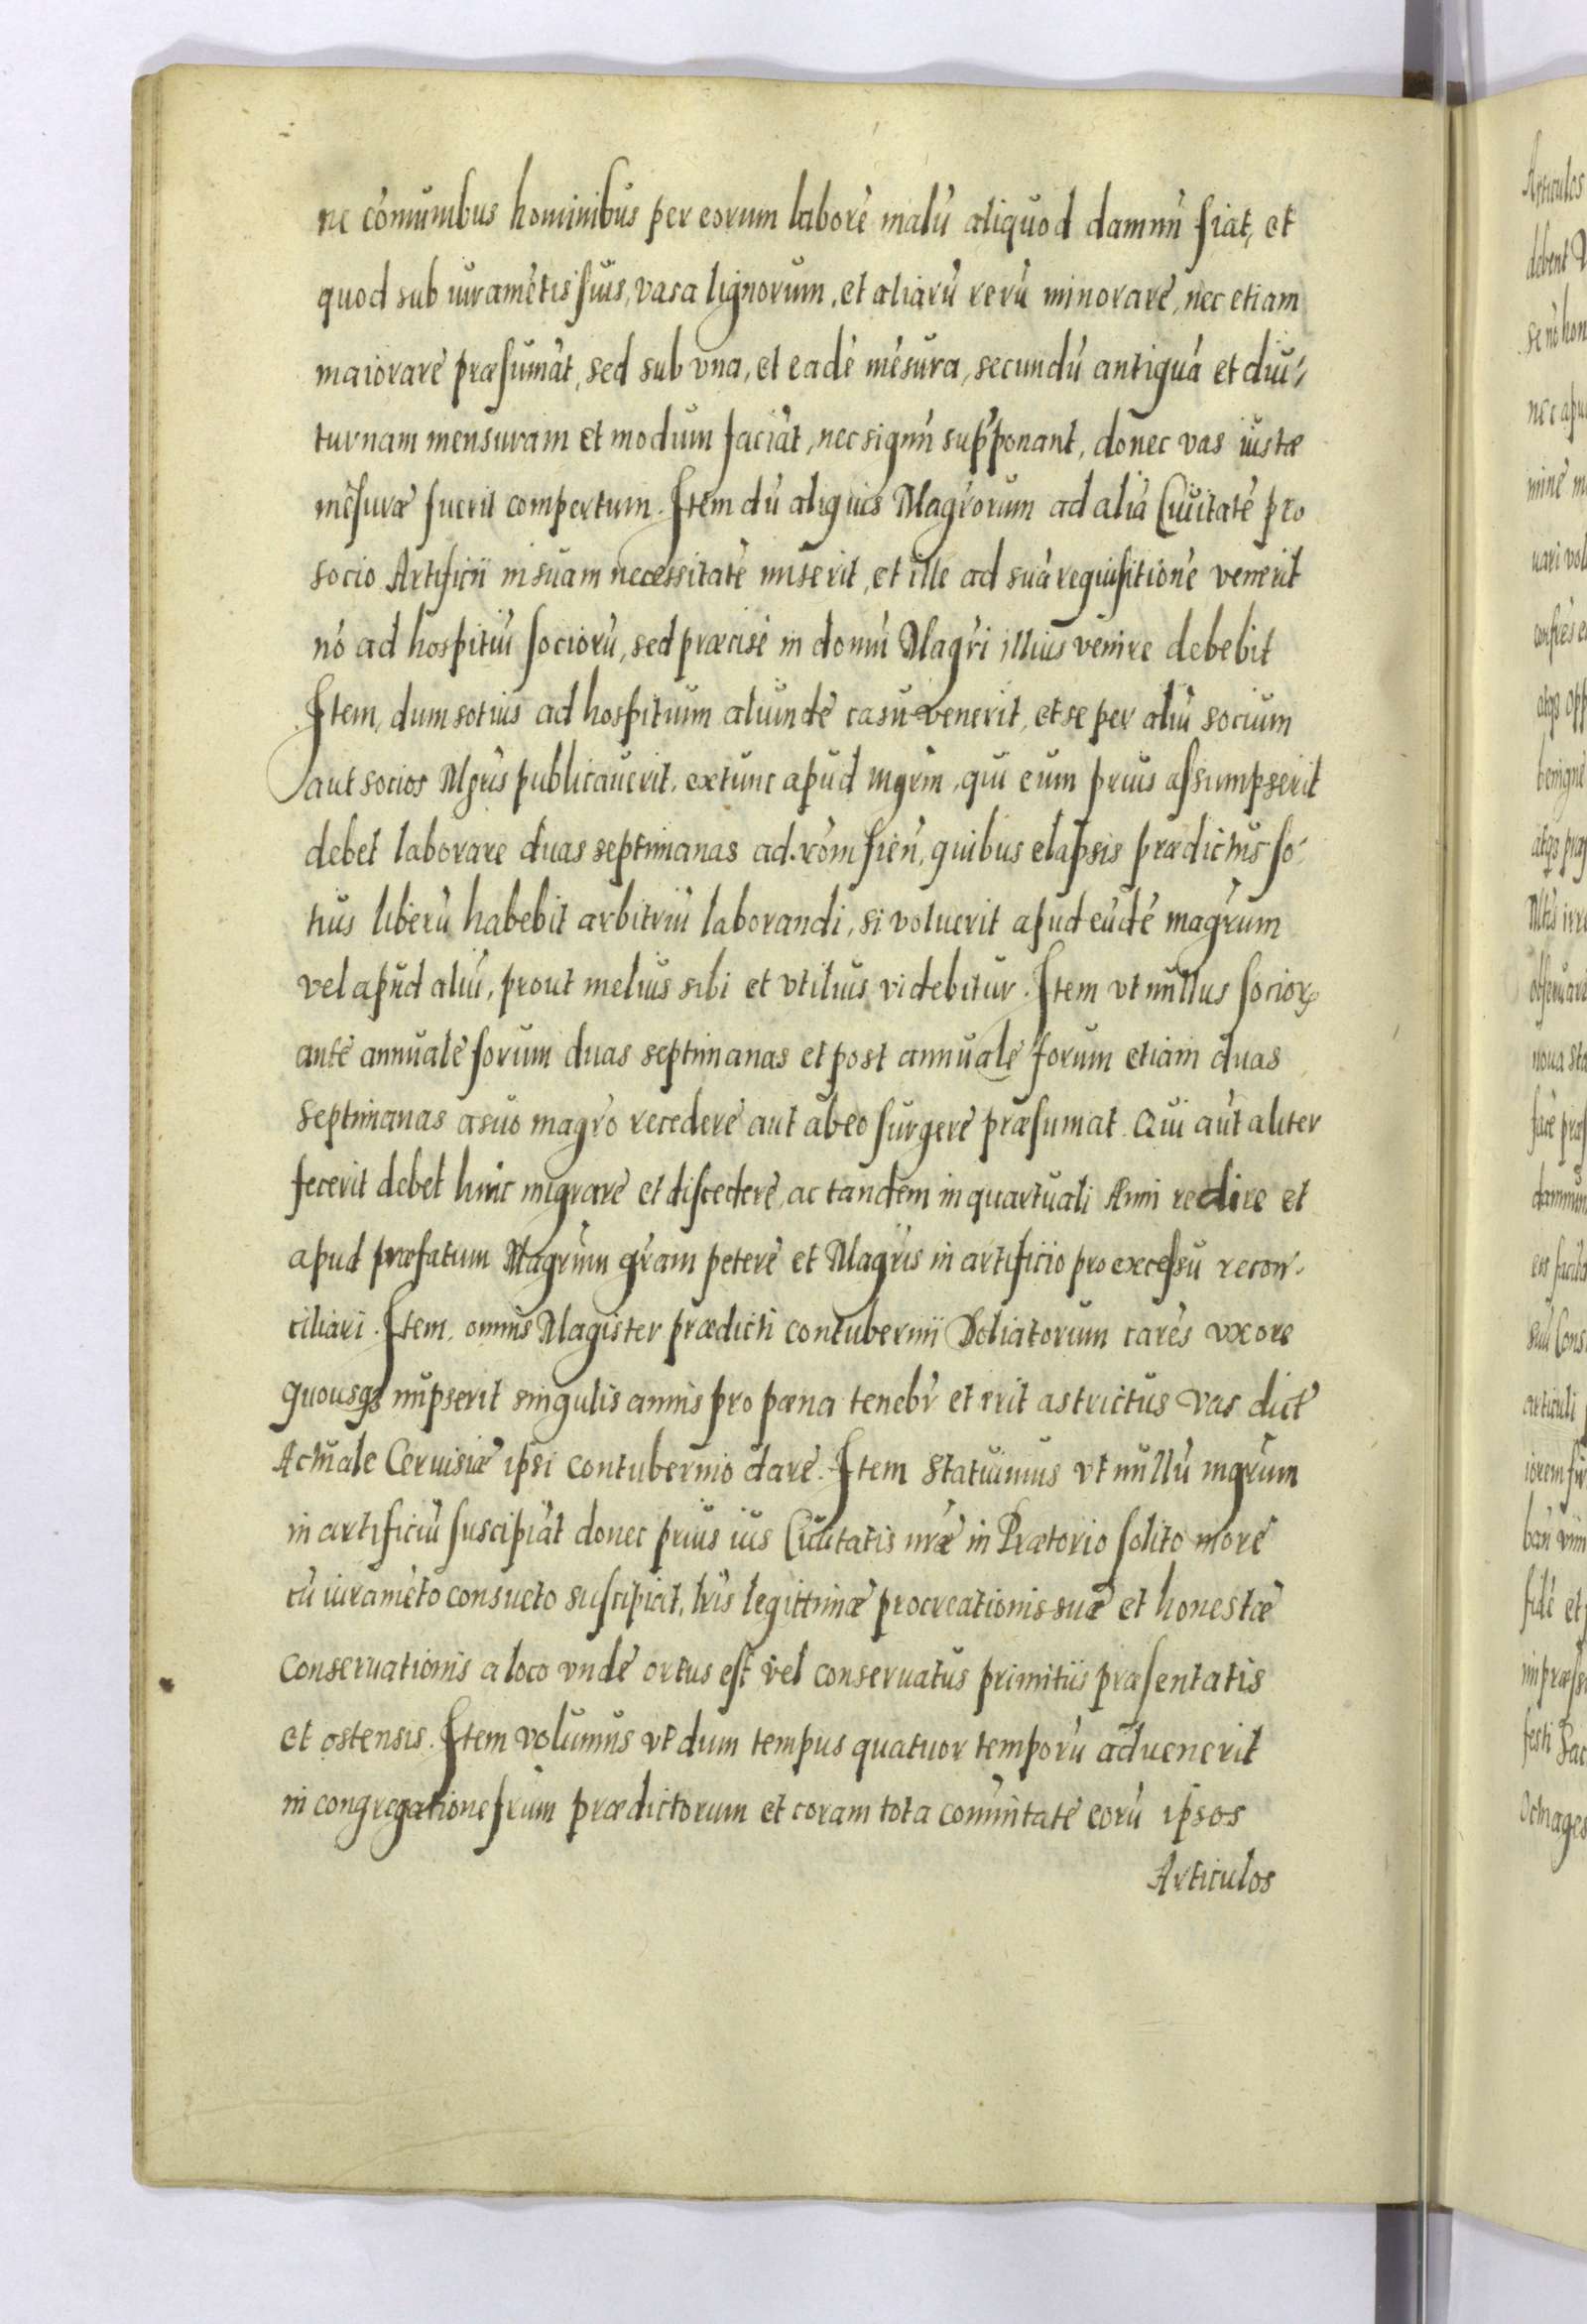 ne cōmunibus hominibus per eorum laborē malū aliquod damnū fiat, et
quod sub iuramētis suis, vasa lignorum, et aliarū rerū minorare, nec etiam
maiorare præsumāt, sed sub vna, et eadē mēsura, secundū antiquā et diu-
turnam mensuram et modum faciāt, nec signū supponant, donec vas iustæ
mēsuræ fuerit compertum. Item dū aliquis Magrorum ad aliā Ciuitatē pro
socio Artificii in suam necessitatē miserit, et ille ad suā requisitionē venerit
nō ad hospitiū sociorū, sed præcise in domū Magri illius venire debebit
Item, dum sotius ad hospitium aliunde casu venerit, et se per aliū socium
aut socios Mgris publicauerit, extunc apud mgrm, qui eum prius assumpserit
debet laborare duas septimanas ad rōm fień, quibus elapsis prædictus so-
tius liberū habebit arbitriū laborandi, si voluerit apud eūdē magrum
vel apud aliū, prout melius sibi et vtilius videbitur. Item vt nullus socioꝝ
ante annuale forum duas septimanas et post annuale forum etiam duas
septimanas a suo magro recedere aut ab eo surgere præsumat. Qui aūt aliter
fecerit debet hinc migrare et discedere, ac tandem in quartuali Anni redire et
apud præfatum Magrum gram petere et Magris in artificio pro excessu recon-
ciliari. Item, omnis Magister prædicti contubernii Doliatorum carēs vxore
quousqꝫ nupserit singulis annis pro pæna tenebr et erit astrictus vas dict
Actuale Ceruisiæ ipsi contubernio dare. Item Statuimus vt nullū mgrum
in artificiū suscipiāt donec prius ius Ciuitatis nræ in Prætorio solito more
cū iuramēto consueto suscipiat, lris legittimæ procreationis suæ et honestæ
Conseruationis a loco vnde ortus est vel conseruatus primitiis præsentatis
et ostensis. Item volumus vt dum tempus quatuor temporū aduenerit
in congregatione frum prædictorum et coram tota comūnitate eorū ipsos
Articulos